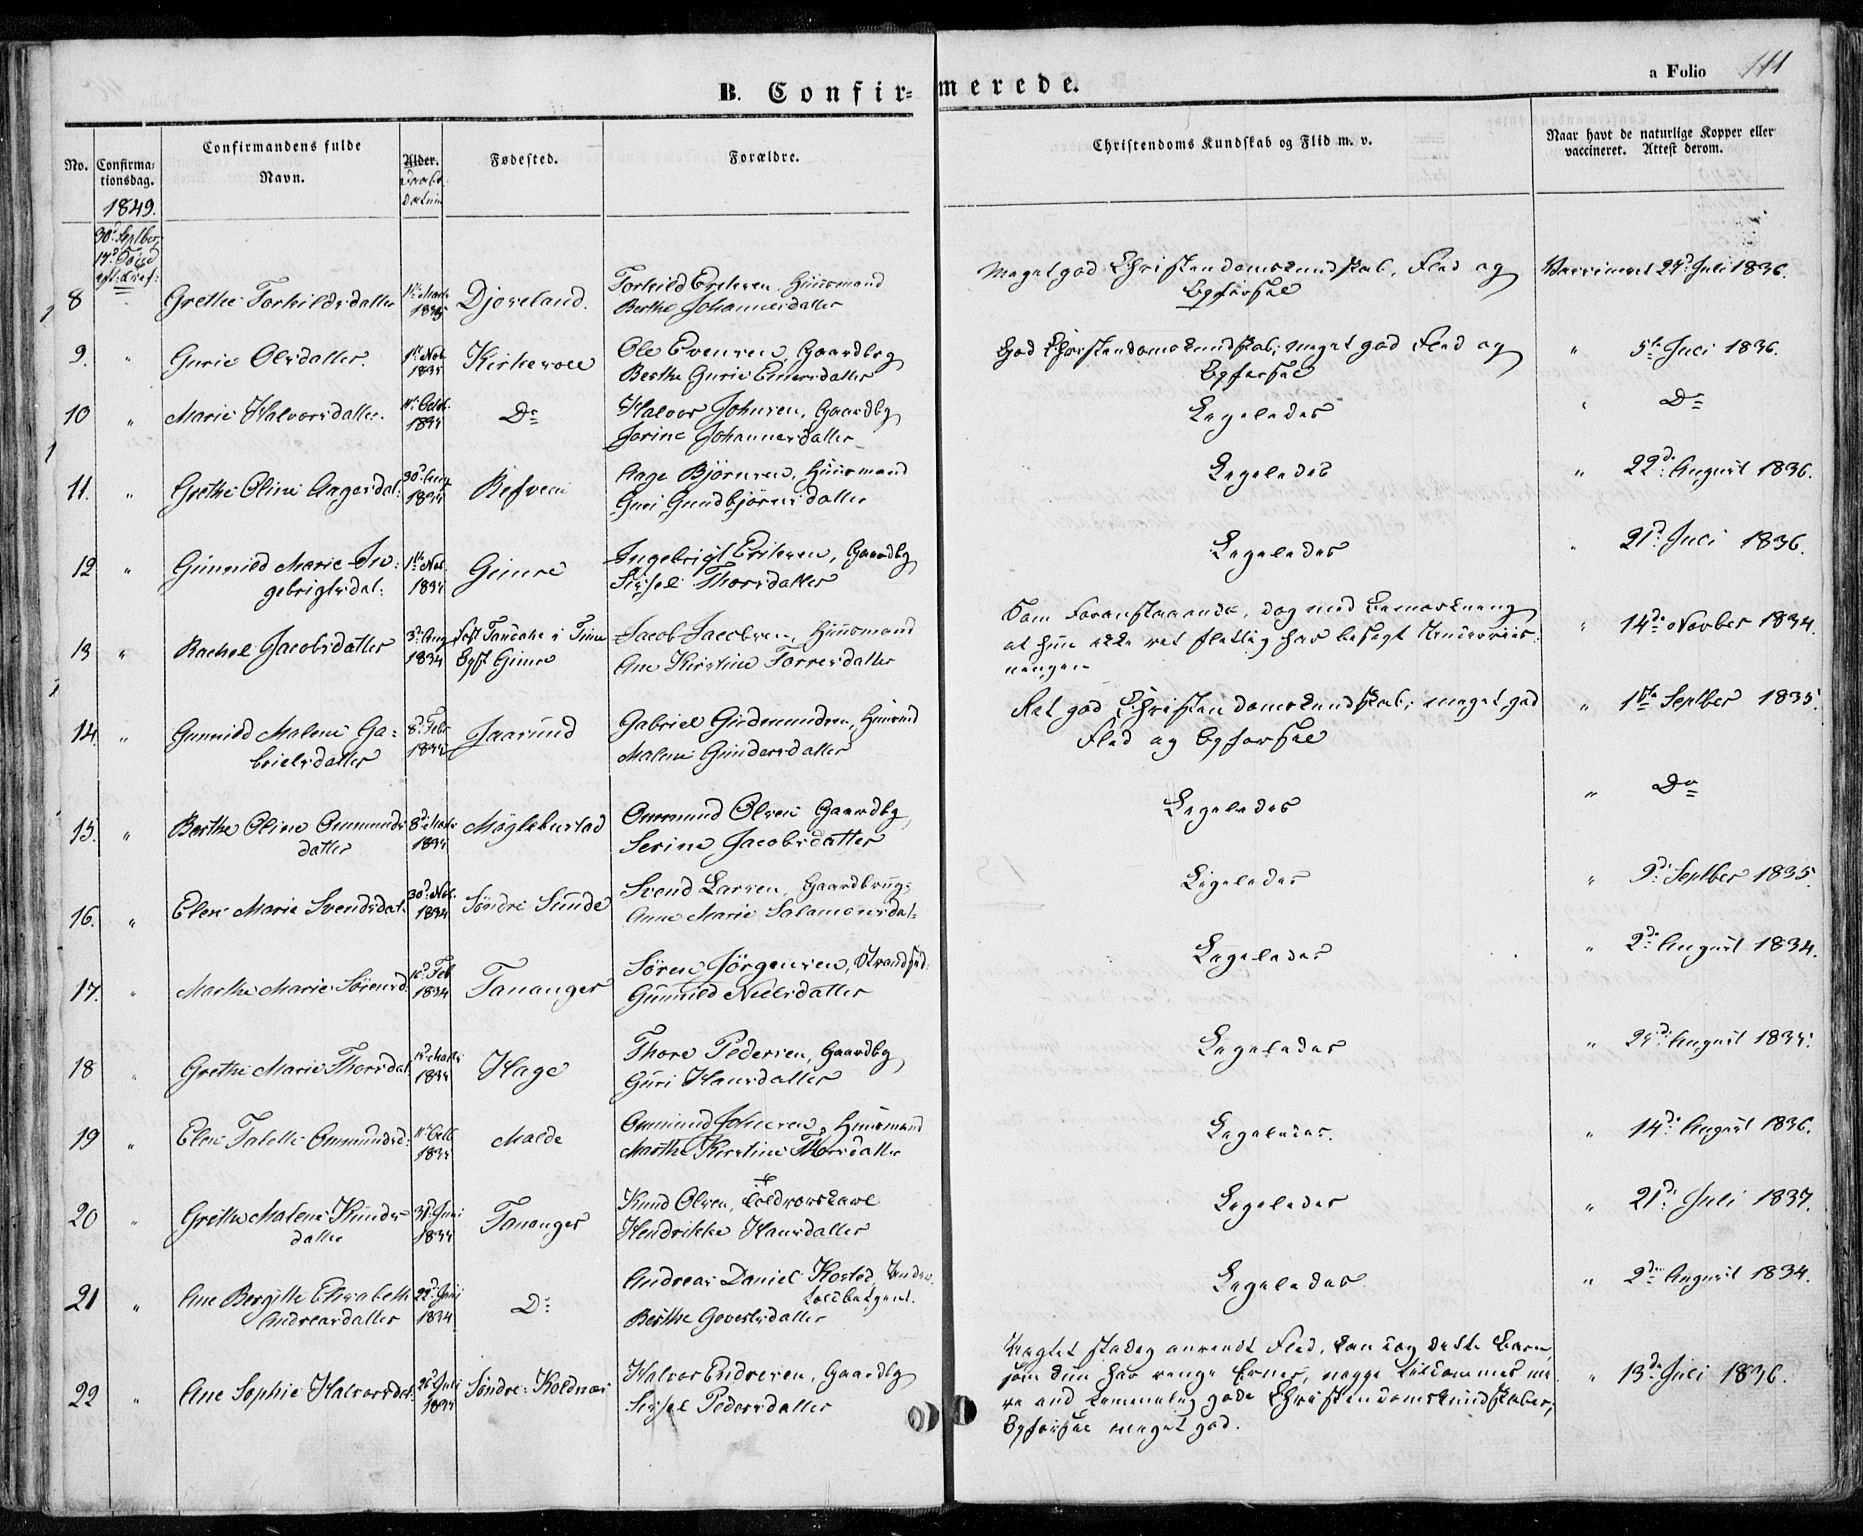 B. Confir= merede.
a Folio 111
No.
Confirma=
tionsdag.
Confirmandens fulde
Navn.
Alder.
Daabs
Datum
Fødested.
Forældre.
Christendoms Kundskab og Flid m. v.
Naar havt de naturlige Kopper eller
vaccineret. Attest derom.
1849.
30d Septber
17d Sønd
eft: Tref:
8 Grethe Torkildsdatter 1835 Djoreland. Torkild Ericksen, Huusmand
Berthe Johannesdatter
Meget god Christendomskundskab, Flid og
Opførsel
Vaccineret 29d Juli 1836.
9. " Gurie Olsdatter. 1st Nov. 1835 Kirkevold Ole Evensen, Gaardbrg
Berthe Gurie Einersdatter
God Christendomskundskab, meget god Flid og
Opførsel
" 5te Juli 1836.
10 " Marie Halvorsdatter. 1835 Do Halvor Johnsen, Gaardbg
Jorine Johannesdatter
Ligeledes
" Do
11. " Grethe Oline Aagesdat: 30d Aug 1835 Refveim Aage Bjørnsen, Huusmand
Guri Gundbjørnsdatter
Ligeledes
" 22de August 1836.
12 " Gunnild Marie In=
gebrigtsdat: 1ste Nov. 1835 Gimre Ingebrigt Ericksen, Gaardbg
Sissel Thorsdatter
Ligeledes
" 21d Juli 1836.
13 " Rachel Jacobsdatter 3d Aug 1834 Født i Time
Opf: Gimre
Jacob Jacobsen, Huusmand
Ane Kirstine Torresdatter
Som Foranstaaende, dog med Bemærkning
at hun ikke ret flittig har besøgt Underviis=
ningen
" 14de Novber 1834.
14. " Gunnild Malene Ga=
brielsdatter 8d Feb 1835 Jaasund Gabriel Gudmundsen, Huusmd
Malene Gundersdatter
Ret god Christendomskundskab, meget god
Flid og Opførsel
" 1ste Septber 1835.
15. " Berthe Oline Ommunds
datter 8d 1835 Møglebustad Ommund Olsen Gaardbg,
Serine Jacobsdatter
Ligeledes
" Do
16. " Elen Marie Svendsdat. 30d Nov. 1834 Søndre Sunde Svend Larsen, Gaardbrug:
Anne Marie Salamonsdat=
Ligeledes
" 9d Septber 1835.
17. " Marthe Marie Sørensd. 16d Feb 1834 Tananger Søren Jørgensen, Strandsid:
Gunnild Nielsdatter
Ligeledes
" 2d August 1834.
18 " Grethe Marie Thorsdat 1835 Hage Thore Pedersen, Gaardbg
Guri Hansdatter
Ligeledes
" August 1835.
19 " Elen Talette Ommundsd: 1835 Malde Ommund Johnsen, Huusmand
Marthe Kirstine Thorsdatter
Ligeledes.
" 14de August 1836.
20 " Grethe Malene Knuds
datter 1835 Tananger Knud Olsen, Toldroerskarl
Hendrikke Hansdatter
Ligeledes
" 21d Juli 1837.
21 " Ane Bergitte Elisabeth
Andreasdatter 22d Juni 1834 Do Andreas Daniel Kosted, Under
toldbetjent.
Berthe Govertsdatter
Ligeledes
" 2den August 1834.
22 " Ane Sophie Halvorsdat. 26d Juli 1835 Søndre Koldnæs Halvor Endresen, Gaardbg
Sissel Pedersdatter
Uagtet stadig anvendt Flid, kan dog dette Barn,
som kun har ringe Evner, neppe tilkommes me=
re end temmelig gode Christendomskundskaber;
Opførsel meget god.
" 13de Juli 1836.